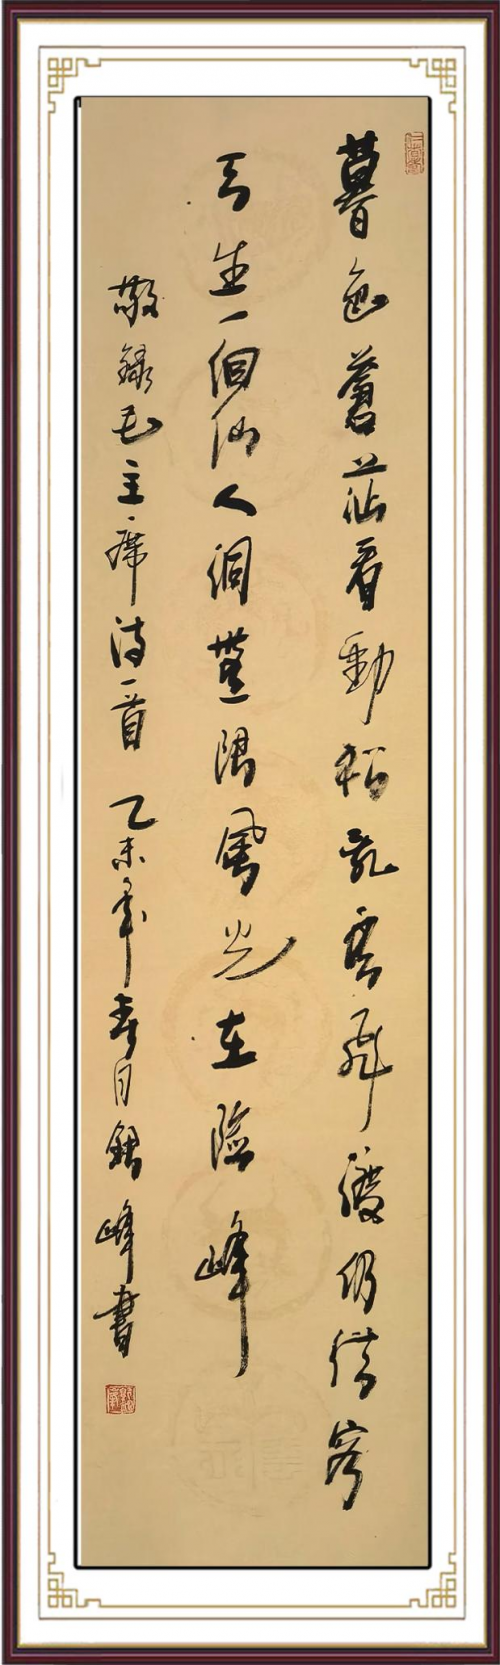 暮色蒼茫看勁松亂雲飛渡仍從容
天生一個仙人洞無限風光在險峰
敬錄毛主席詩一首 乙未年春月峰書